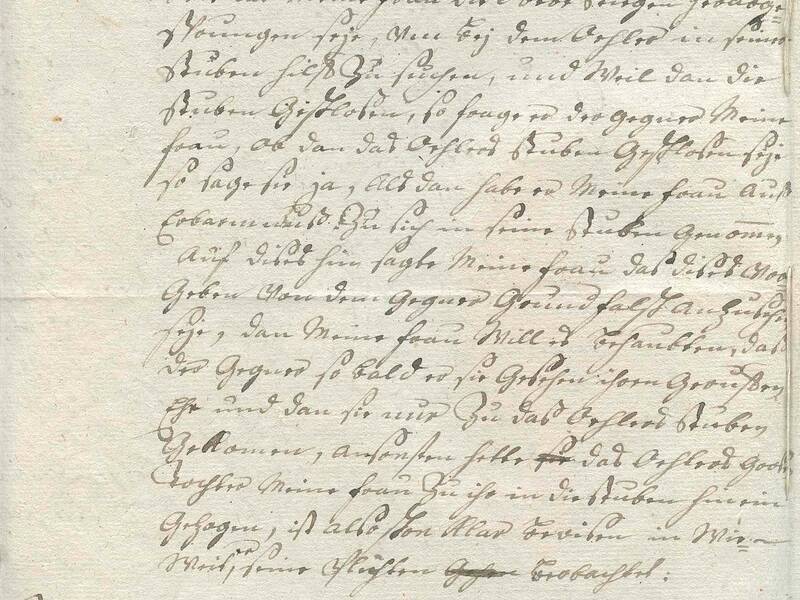 Meine frau die
sprungen seje, Um bej dem Oehler in seiner
stuben hilf Zu suchen, und Weil dan die
stuben Geschlosen, so frage er der gegner Meine
frau, ob dan das Oehlers stuben Geschlosen seje
so sage sie ja, Als dan habe er Meine frau Auß
Erbarmnuß Zu sich in seine stuben Genommen
Auf dises hin sagte Meine frau das dises Vor
Geben Von dem Gegner Grundfalsch Anzusehen
seje, dan Meine frau Will es behaubten, das
der Gegner so bald er sie Gesehen ihren
und dan sie nur Zu das Oehlers stuben
Gekomen, ansonsten hette das Oehlers
tochter Meine frau Zu ihr in die stuben hinein
Gezogen, ist also schon klar bewisen in Wie
Weit er seine Pflichten beobachtet: